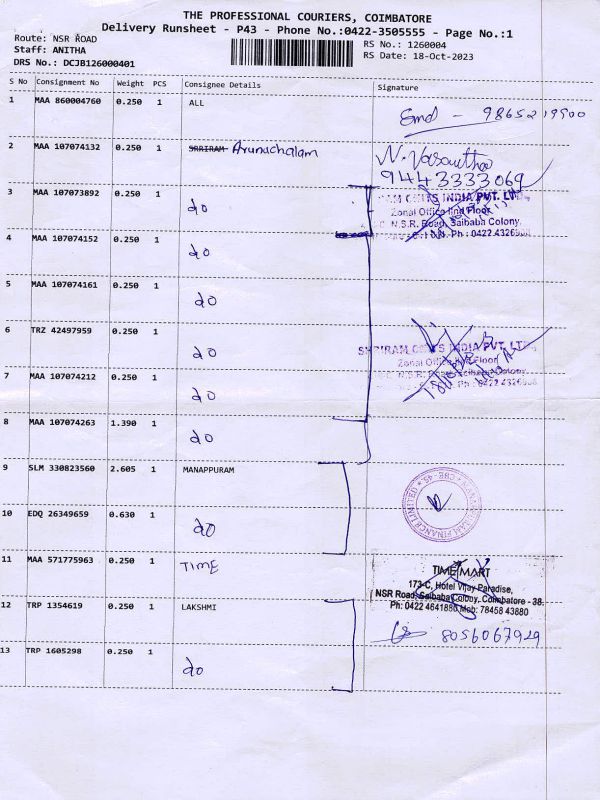 THE PROFESSIONAL COURIERS, COIMBATORE
Delivery Runsheet - P43 - Phone No.:0422-3505555 - Page No.:1
Route: NSR ROAD
RS No.: 1260004
Staff: ANITHA
RS Date: 18-Oct-2023
DRS No.: DCJB126000401
S No Consignment No Weight PCS Consignee Details Signature
1 MAA 860004760 0.250 1 ALL
9865219900
2 MAA 107074132 0.250 1 SHRIRAM Arunachalam
N. Vasantha
9443333069
3 MAA 107073892 0.250 1 do
RAM CHITS INDIA PVT. LTD.
Zonal Office IInd Floor,
N.S.R. Road, Saibaba Colony,
Ph : 0422 4326
4 MAA 107074152 0.250 1 do
5 MAA 107074161 0.250 1 do
6 TRZ 42497959 0.250 1 do
SHRIRAM CHITS INDIA PVT. LTD.,
Zonal Office IInd Floor
N.S.R. Road, Saibaba Colony,
Ph : 0422 4326
7 MAA 107074212 0.250 1 do
8 MAA 107074263 1.390 1 do
9 SLM 330823560 2.605 1 MANAPPURAM
FINANCE LIMITED
CBE-45
10 EDQ 26349659 0.630 1 do
11 MAA 571775963 0.250 1 TIME
TIME MART
173-C, Hotel Vijay Paradise,
NSR Road, Saibaba Colony, Coimbatore - 38.
Ph: 0422 4641880 Mob: 78458 43880
12 TRP 1354619 0.250 1 LAKSHMI
8056067929
13 TRP 1605298 0.250 1 do